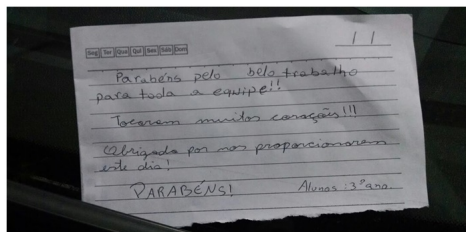 Seg Ter Qua Qui Sex Sáb Dom
/ /
Parabéns pelo belo trabalho
para toda a equipe!!
Tocaram muitos corações!!!
Obrigada por nos proporcionarem
este dia!
PARABÉNS! Alunas: 3º ano.